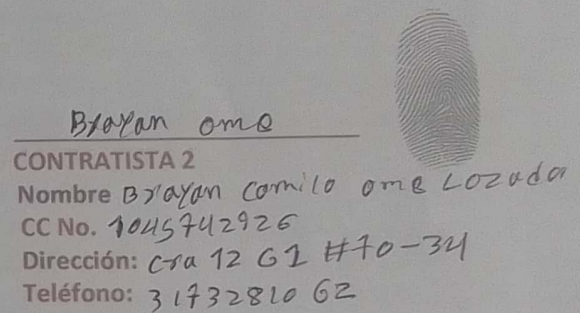 Brayan ome
CONTRATISTA 2
Nombre Brayan comilo ome Lozada
CC No. 1045742926
Dirección: cra 12 G1 #70-34
Teléfono: 3173281062